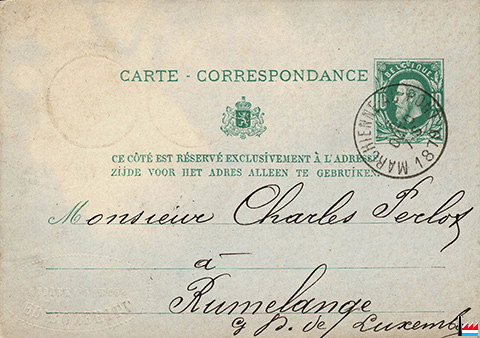 CARTE - CORRESPONDANCE
BELGIQUE
CE CÔTÉ EST RÉSERVÉ EXCLUSIVEMENT À L'ADRESSE
ZIJDE VOOR HET ADRES ALLEEN TE GEBRUIKEN.
Monsieur Charles Perlot
à
Rumelange
G D. de Luxemb